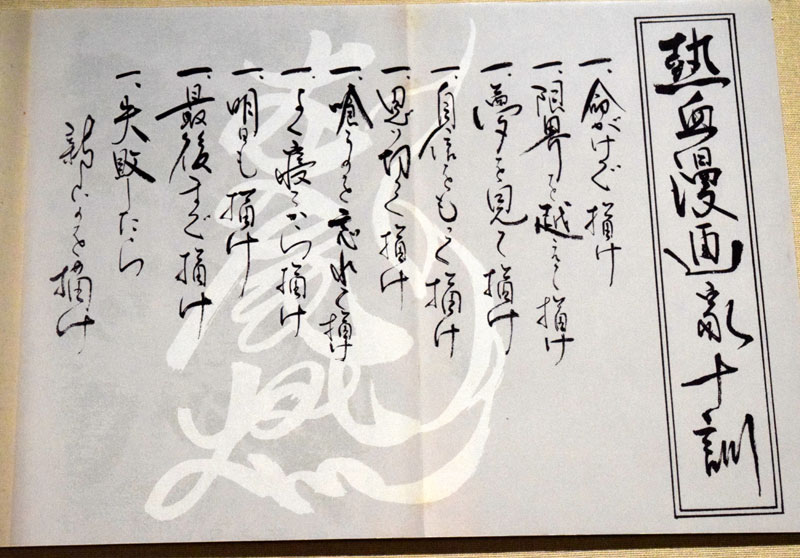 熱血漫画家十訓
一、命がけで描け
一、限界を越えて描け
一、夢を見て描け
一、自信をもって描け
一、思い切って描け
一、喰うのを忘れて描け
一、よく寝てから描け
一、明日も描け
一、最後まで描け
一、失敗したら
新しいのを描け